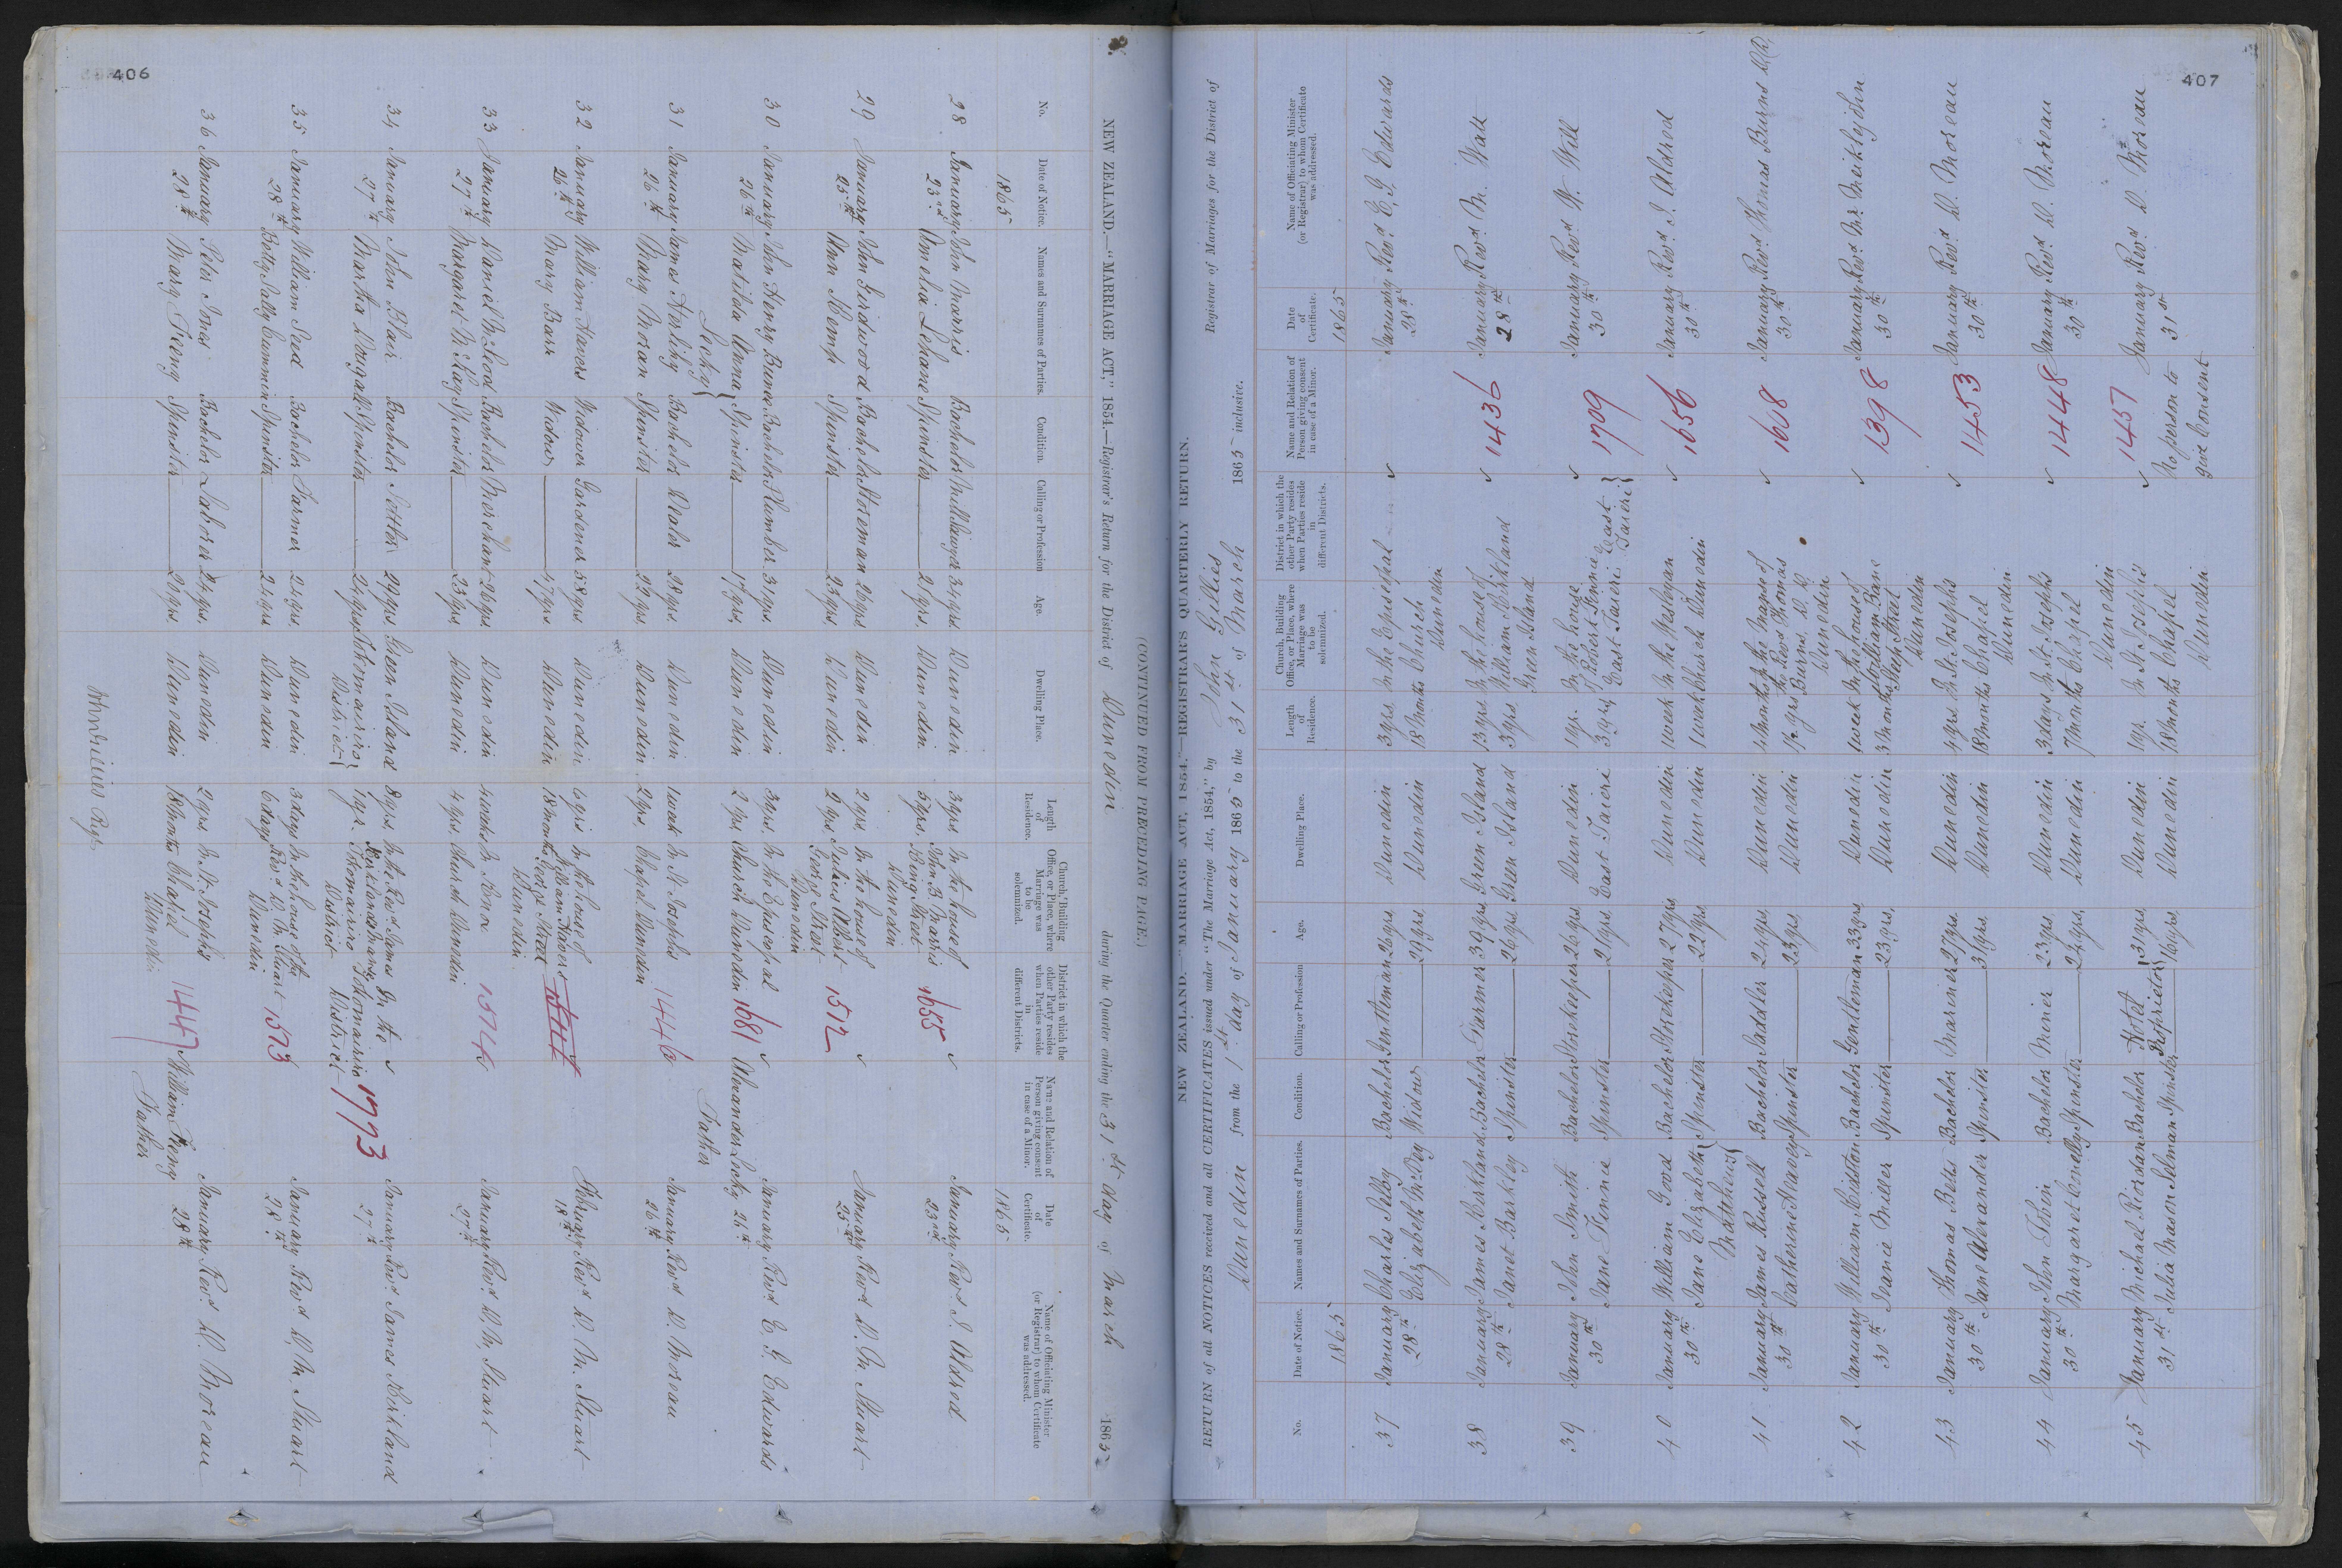 406
(CONTINUED FROM PRECEDING PAGE.)
NEW ZEALAND.—"MARRIAGE ACT," 1854.—Registrar's Return for the District of Dunedin during the Quarter ending the 31st day of March 1865
No.
Date of Notice.
Names and Surnames of Parties.
Condition.
Calling or Profession
Age.
Dwelling Place.
Length of Residence.
Church, Building Office, or Place, where Marriage was to be solemnized.
District in which the other Party resides when Parties reside in different Districts.
Name and Relation of Person giving consent in case of a Minor.
Date of Certificate.
Name of Officiating Minister (or Registrar) to whom Certificate was addressed.
1865 1865
28 January John Marris Bachelor Mill Sawyer 34 yrs. Dunedin 3 yrs. In the house of ✓ January Revd I. Aldred
23rd Amelia Lehane Spinster 21 yrs. Dunedin. 5 yrs. John B. Marris 1655 23rd
King Street
Dunedin
29 January John Girdwood Bachelor Storeman 26 yrs. Dunedin 2 yrs. In the house of ✓ January Revd D. M. Stuart
25th Ann Kemp Spinster 23 yrs. Dunedin 2 yrs. Julius West 1512 25th
George Street
Dunedin
30 January John Henry Burne Bachelor Plumber 31 yrs. Dunedin 3 yrs. In the Episcopal ✓ January Revd E. G. Edwards
26th Matilda Anna Lecky } Spinster 17 yrs. Dunedin 2 yrs. Church Dunedin 1681 Alexander Lecky 26th
Father
31 January James Herlihy Bachelor Dealer 28 yrs. Dunedin 1 week In St Josephs January Revd D. Moreau
26th Mary Moran Spinster 22 yrs. Dunedin 2 yrs. Chapel Dunedin 1446 26th
32 January William Havers Widower Gardener 58 yrs. Dunedin 4 yrs In the house of February Revd D. M. Stuart
26th Mary Barr Widow 47 yrs Dunedin 18 months William Havers 18th
George Street
Dunedin
33 January Daniel McLeod Bachelor Merchant 26 yrs. Dunedin In Knox January Revd D. M. Stuart
27th Margaret McKay Spinster 23 yrs. Dunedin 4 yrs. Church Dunedin 1574 27th
34 January John Blair Bachelor Settler 29 yrs Green Island 8 yrs. In the Revd James In the ✓ January Revd James Kirkland
27th Martha Dougall Spinster 24 yrs Tokomairiro District } 1 yr. Kirkland's Manse Tokomairiro 1773 27th
Tokomairiro District
District
35 January William Seed Bachelor Farmer 24 yrs. Dunedin 3 days In the house of the January Revd D. M. Stuart
28th Betty Sally Cummin Spinster 24 yrs Dunedin 6 days Revd D. M. Stuart 1573 28th
Dunedin
36 January Peter Jones Bachelor Laborer 24 yrs. Dunedin 2 yrs. In St Josephs William Feeny January Revd D. Moreau
28th Mary Feeny Spinster 20 yrs. Dunedin 18 months Chapel 1447 Father 28th
Dunedin
John Gillies Regr
407
NEW ZEALAND.—"MARRIAGE ACT, 1854."—REGISTRAR'S QUARTERLY RETURN.
RETURN of all NOTICES received and all CERTIFICATES issued under "The Marriage Act, 1854," by John Gillies Registrar of Marriages for the District of
Dunedin from the 1st day of January 1865 to the 31st of March 1865 inclusive.
No.
Date of Notice.
Names and Surnames of Parties.
Condition.
Calling or Profession
Age.
Dwelling Place.
Length of Residence.
Church, Building Office, or Place, where Marriage was to be solemnized.
District in which the other Party resides when Parties reside in different Districts.
Name and Relation of Person giving consent in case of a Minor.
Date of Certificate.
Name of Officiating Minister (or Registrar) to whom Certificate was addressed.
1865 1865
37 January Charles Selby Bachelor Gentleman 26 yrs. Dunedin 3 yrs. In the Episcopal ✓ January Revd E. G. Edwards
28th Elizabeth Widow 29 yrs. Dunedin 18 months Church 28th
Dunedin
38 January James Kirkland Bachelor Farmer 39 yrs. Green Island 13 yrs. In the house of ✓ January Revd M. Watt
28th Janet Barkley Spinster 26 yrs. Green Island 3 yrs. William Kirkland 1436 28th
Green Island
39 January John Smith Bachelor Storekeeper 26 yrs Dunedin 1 yr. In the house East Taieri } ✓ January Revd W. Will
30th Jane Rennie Spinster 21 yrs. East Taieri 3 yrs of Robert Rennie 1709 30th
East Taieri
40 January William Good Bachelor Storekeeper 27 yrs. Dunedin 1 week In the Wesleyan ✓ January Revd I. Aldred
30th Jane Elizabeth Mathews } Spinster 22 yrs. Dunedin 1 week Church Dunedin 1656 30th
41 January James Russell Bachelor Saddler 24 yrs. Dunedin 4 months In the Manse of ✓ January Revd Thomas Burns D.D.
30th Catherine Spinster 23 yrs. Dunedin 1½ yrs the Revd Thomas 1608 30th
Burns. D.D.
Dunedin
42 January William Bachelor Gentleman 33 yrs Dunedin 1 week In the house of ✓ January Revd Mr Meiklejohn
30th Jeanie Miller Spinster 23 yrs. Dunedin 3 months 1398 30th
Street
Dunedin
43 January Thomas Betts Bachelor Mariner 27 yrs. Dunedin 4 yrs. In St. Josephs ✓ January Revd D. Moreau
30th Jane Alexander Spinster 31 yrs. Dunedin 18 months Chapel 1453 30th
Dunedin
44 January John Tobin Bachelor Miner 23 yrs. Dunedin 3 days In St. Josephs ✓ January Revd D. Moreau
30th Margaret Conelly Spinster 24 yrs. Dunedin 7 months Chapel 1448 30th
Dunedin
45 January Michael Riordan Bachelor Hotel Proprietor } 31 yrs. Dunedin 1 yr. In St Joseph's ✓ 1457 January Revd D. Moreau
31st Julia Mason Selman Spinster 16 yrs. Dunedin 18 months Chapel No person to 31st
Dunedin give Consent